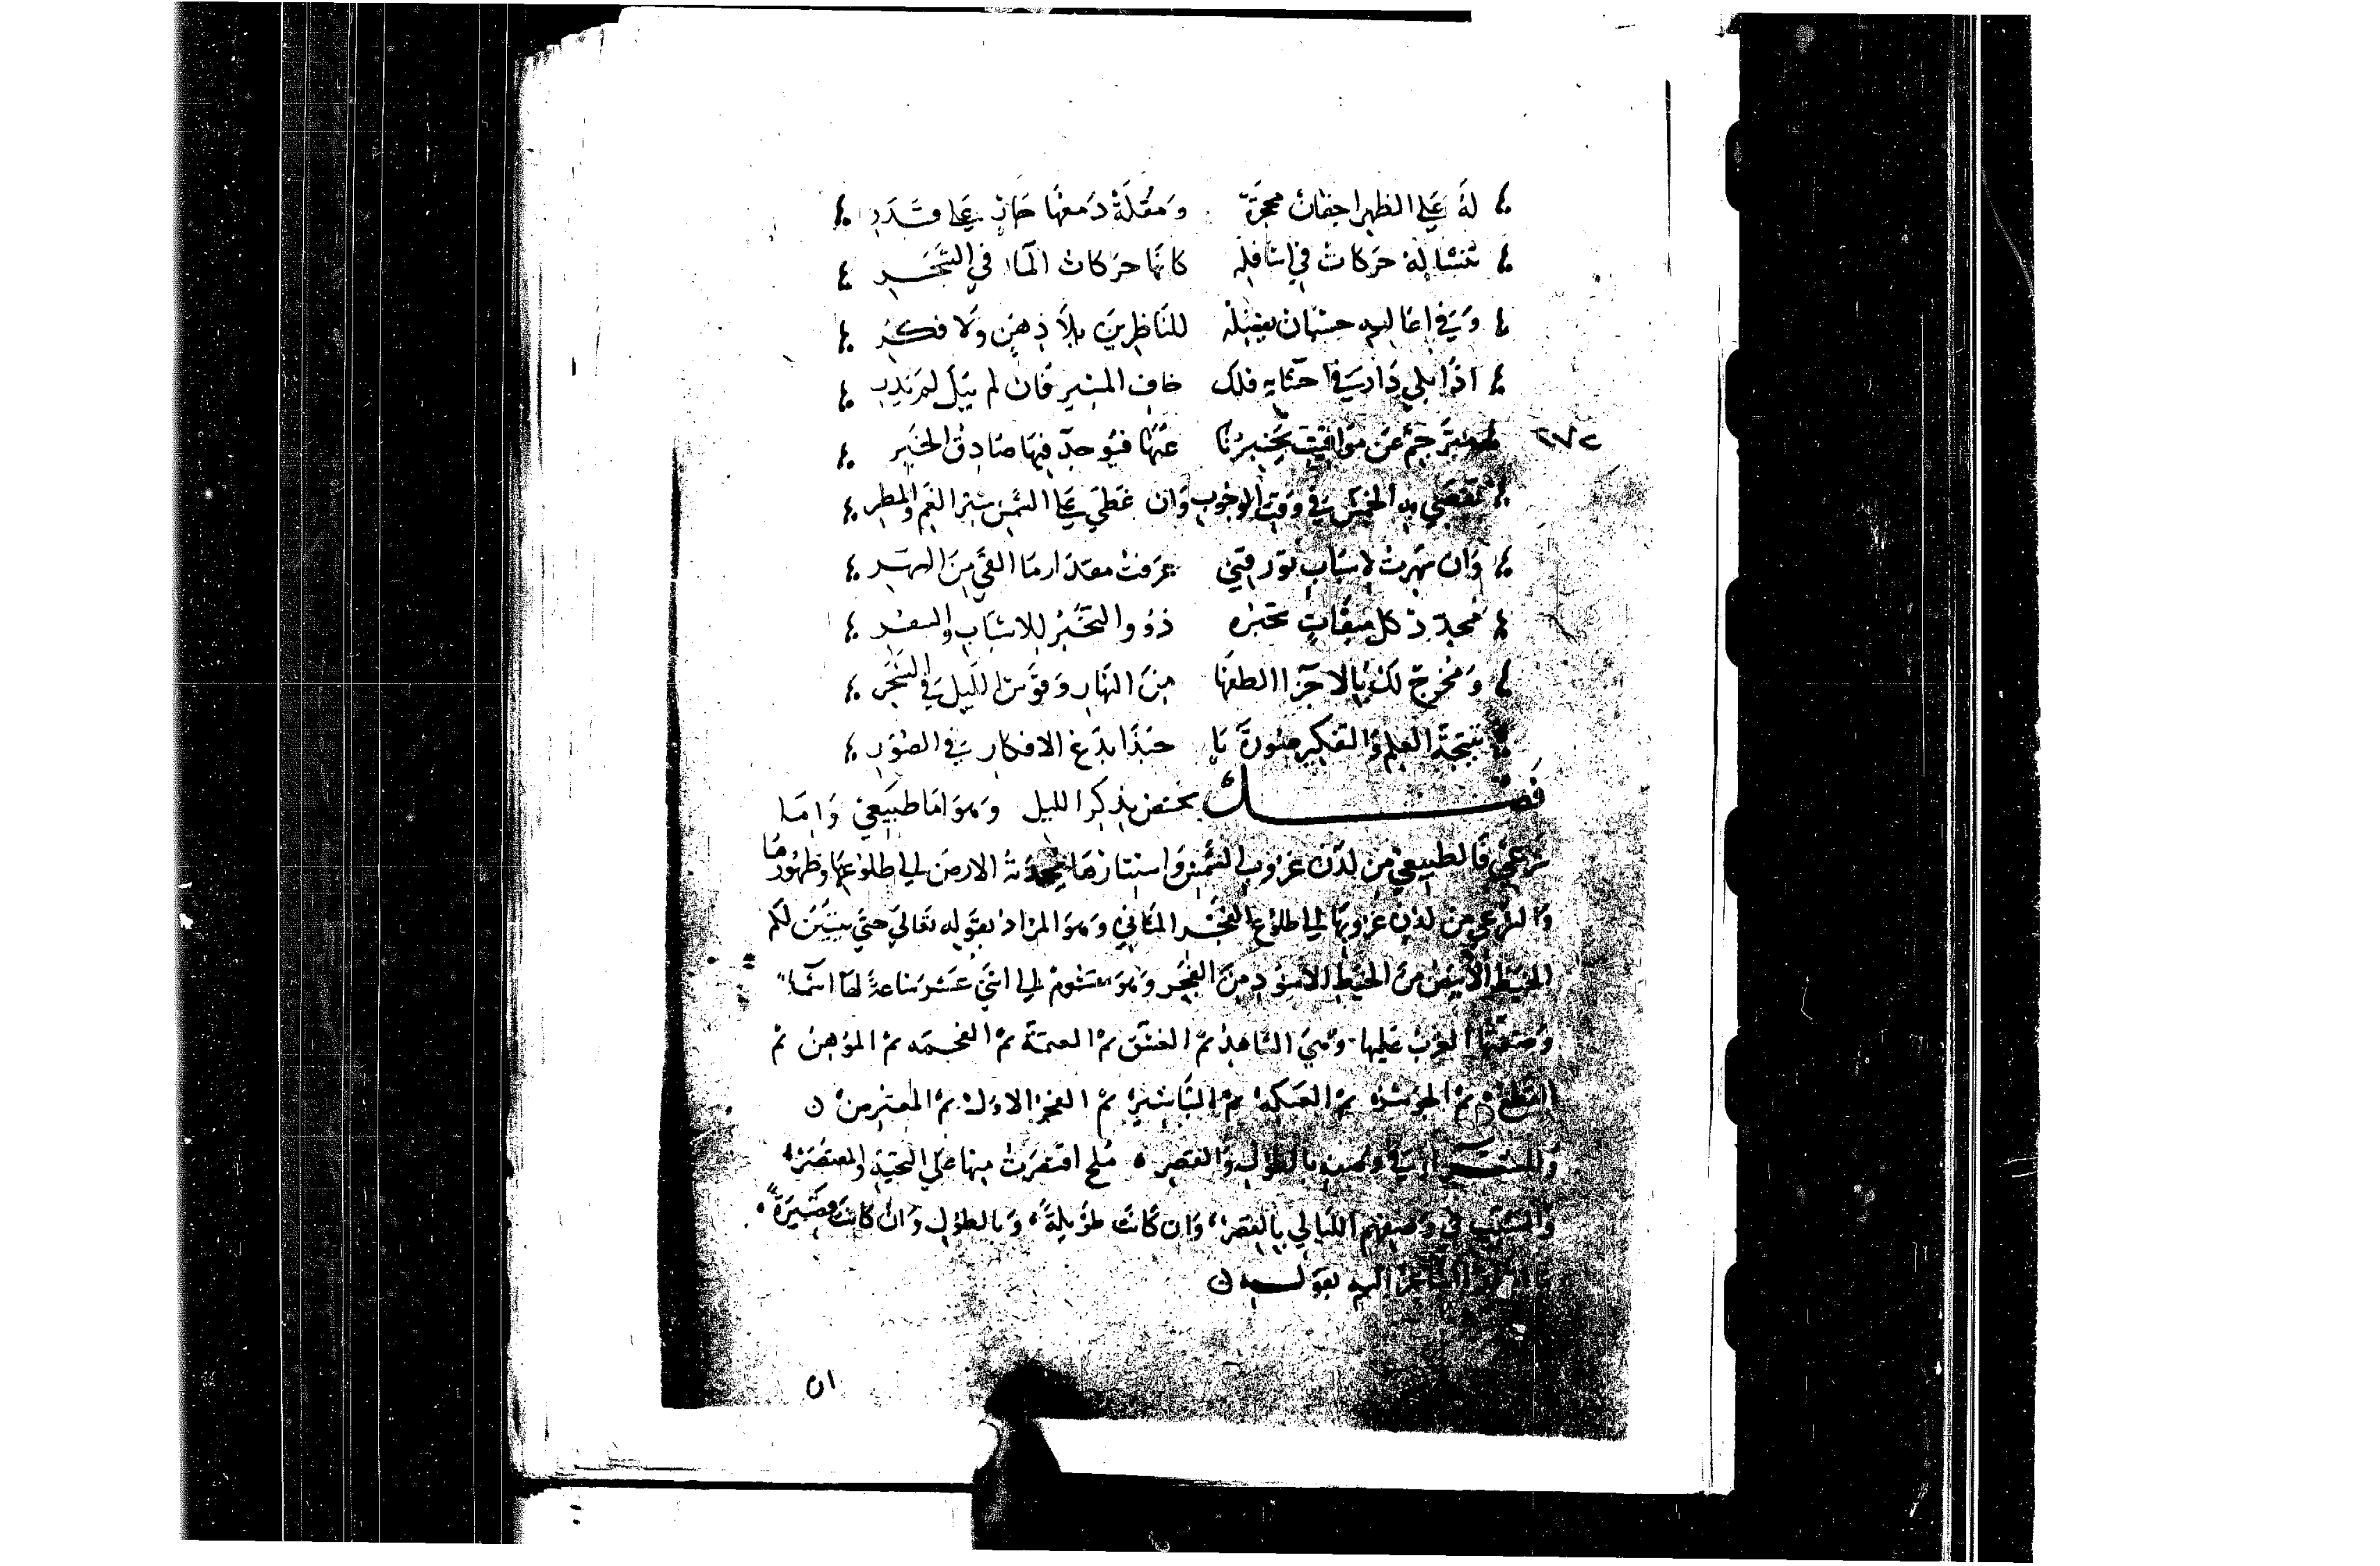 له على الظهر اجفان محجرة ومقلة دمعها جار على قدر
تنشا له حركات في اسافله كانها حركات الماء في الشجر
وفي اعاليه حسبان يفصله للناظرين بلا ذهن ولا فكر
اذا بكى دار في احشايه فلك خافي المسير فان لم يبك لم يدر
٢٧٢
مترجم عن مواقيت يخبرنا عنها فيوجد فيها صادق الخبر
تقضى به الخمس في وقت الوجوب وان غطى على الشمس ستر الغيم والمطر
وان سهرت لاسباب تورقني عرفت مقدار ما القى من السهر
محدد كل ميقات تخيره ذوو التخير للاسباب والسفر
ومخرج لك بالاجزا الطفها من النهار وقوس الليل في السحر
نتيجة العلم والتفكير صورته يا حبذا بدع الافكار في الصور
فصل يختص بذكر الليل وهو اما طبيعي واما
شرعي فالطبيعي من لدن غروب الشمس واستتارها بحدبة الارض الى طلوعها وظهورها
والشرعي من لدن غروبها الى طلوع الفجر الثاني وهو المراد بقوله تعالى حتى يتبين لكم
الخيط الابيض من الخيط الاسود من الفجر وهو مقسوم الى اثنتي عشر ساعة لها اسماء
وضعتها العرب عليها وهي الشاهد ثم الغسق ثم العتمة ثم الفحمه ثم الموهن ثم
القطع ثم الجوشن ثم العتكة ثم التباشير ثم الفجر الاول ثم المعترض
وللشعراء في وصفه بالطول والقصر ملح اقتصرت منها على
والسبب في وصفهم الليالي بالقصر وان كانت طويلة وبالطول وان كانت قصيرة
الشاعر اليه بقوله
ان